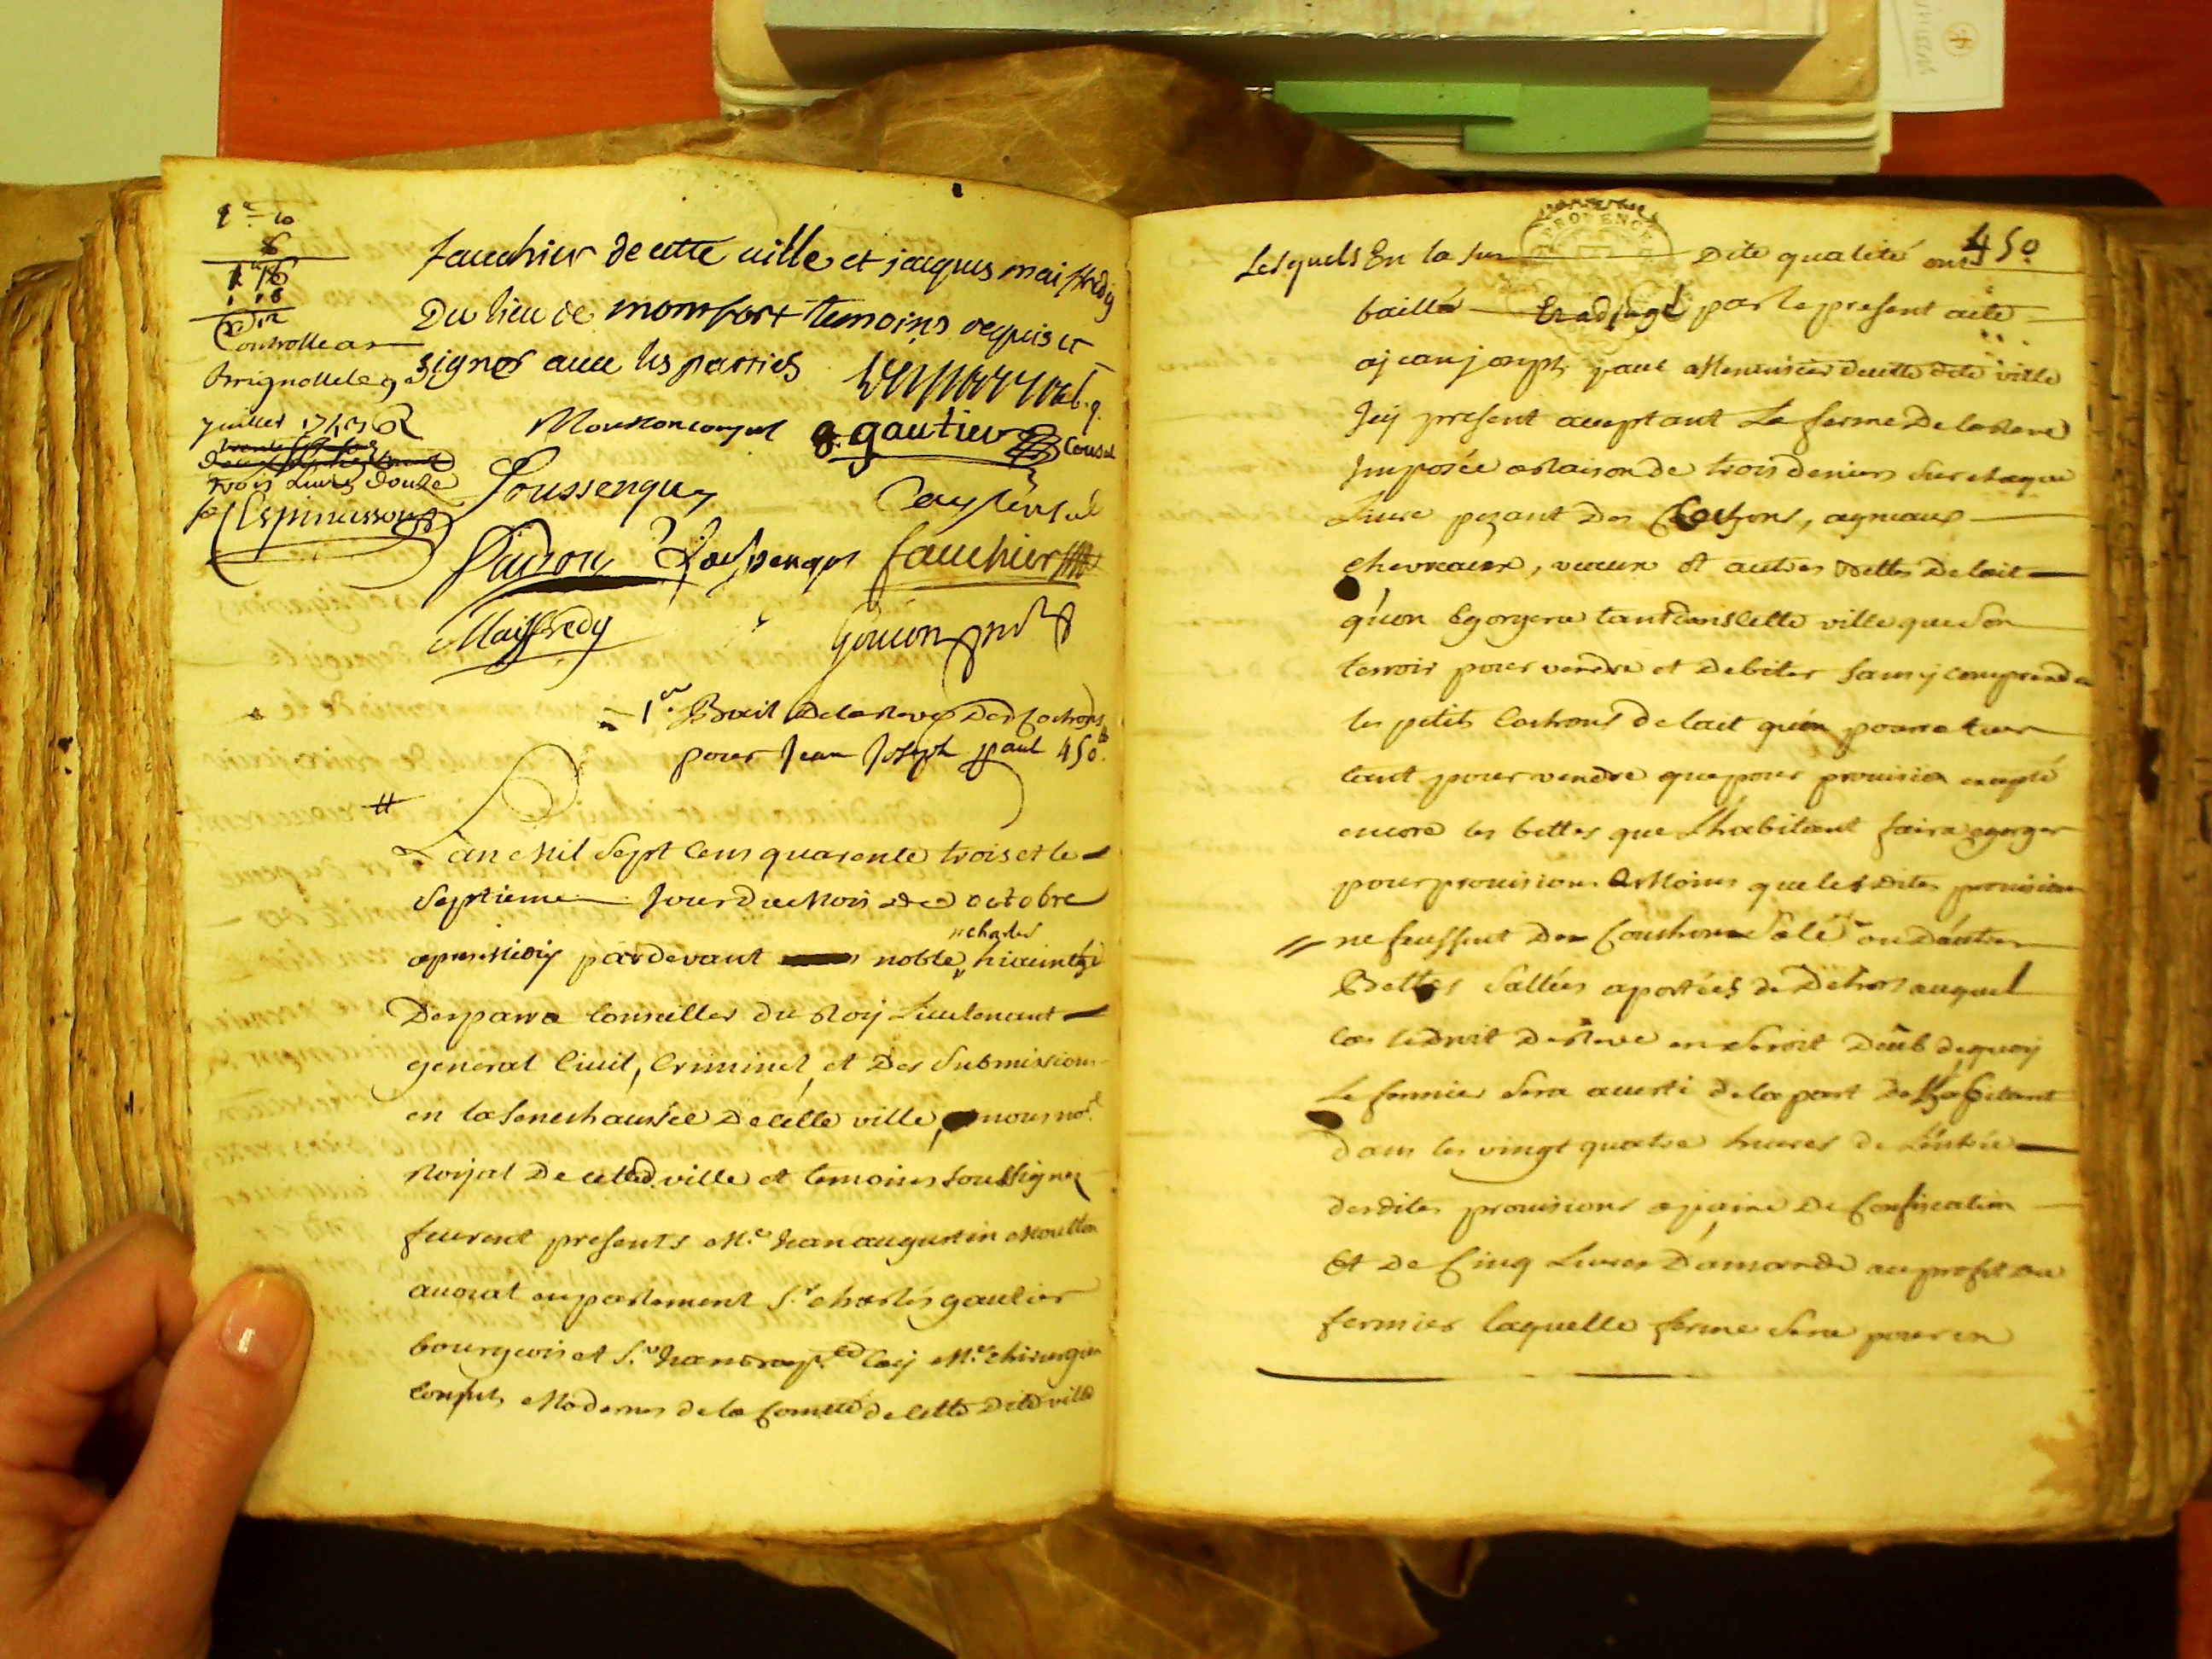 fauchier de cette ville et jacques maiffredy
Du lieu de monfort temoins requis et
signés avec les parties
Controlle a
Brignolle le 9
juillet 1743
trois Livres douze
Espinasson
gautier Consul
Toussenqug
fauchier
Maiffredy
Goujon
1er Bail de la Reve Des Cochons
pour Jean Joseph paul 450
L'an Mil Sept Cens quarente trois et le
Septieme Jour Du Mois de octobre
apres Midy pardevant noble hiaiinthe
charles
Desparra Conseiller du Roy Lieutenant
general Civil, Criminel, et Des Submissions
en la Senechaussée De cette ville, nous no.re
Royal De cetted. ville et temoins soussignez
feurent presents M.e Jean augustin Moutton
avocat en parlement S.r charles gautier
bourgeois et S.r Jean M.e chirurgien
Consuls Modernes de la Com.té de cette Dite ville
PROVENCE
450
Lesquels En la sus Dite qualité ont
baillé Et adjugé par le present acte
a jean joseph paul Menuisier de cette dite ville
Icy present aceptant La ferme De la Reve
Imposée a Raison de trois deniers sur chaque
Livre pezant Des Cochons, agneaux
chevreaux, veaux et autres bettes De lait
qu'on Egorgera tant dans Cette ville que Son
terroir pour vendre et Debiter sans y comprendre
les petits Cochons de lait qu'on pourra tuer
tant pour vendre que pour provision excepté
encore les bettes que L'habitant faira egorger
pour provisions a Moins que lesdites provisions
ne feussent De Couchons Salé ou D'autres
Bettes Sallées aportées de Dehors auquel
Cas le Droit De Reve en Seroit Deub de quoy
Le fermier Sera averti de la part De L'habitant
Dans les vingt quatre heures de L'entrée
desdites provisions a paine De Confiscation
Et De Cinq Livres D'amande au profit du
fermier laquelle ferme Sera pour en